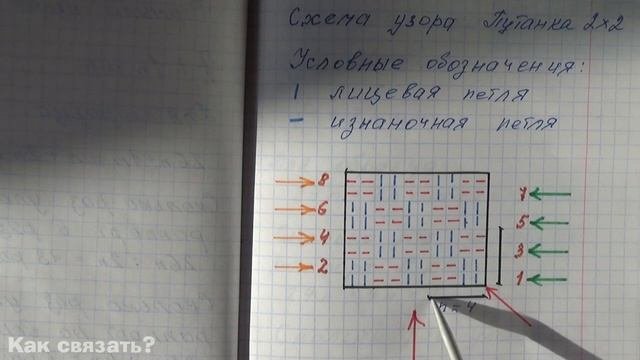 Схема узора Путанка 2×2
Условные обозначения:
| лицевая петля
– изнаночная петля
8 7
6 5
4 3
2 1
n = 4
Как связать?